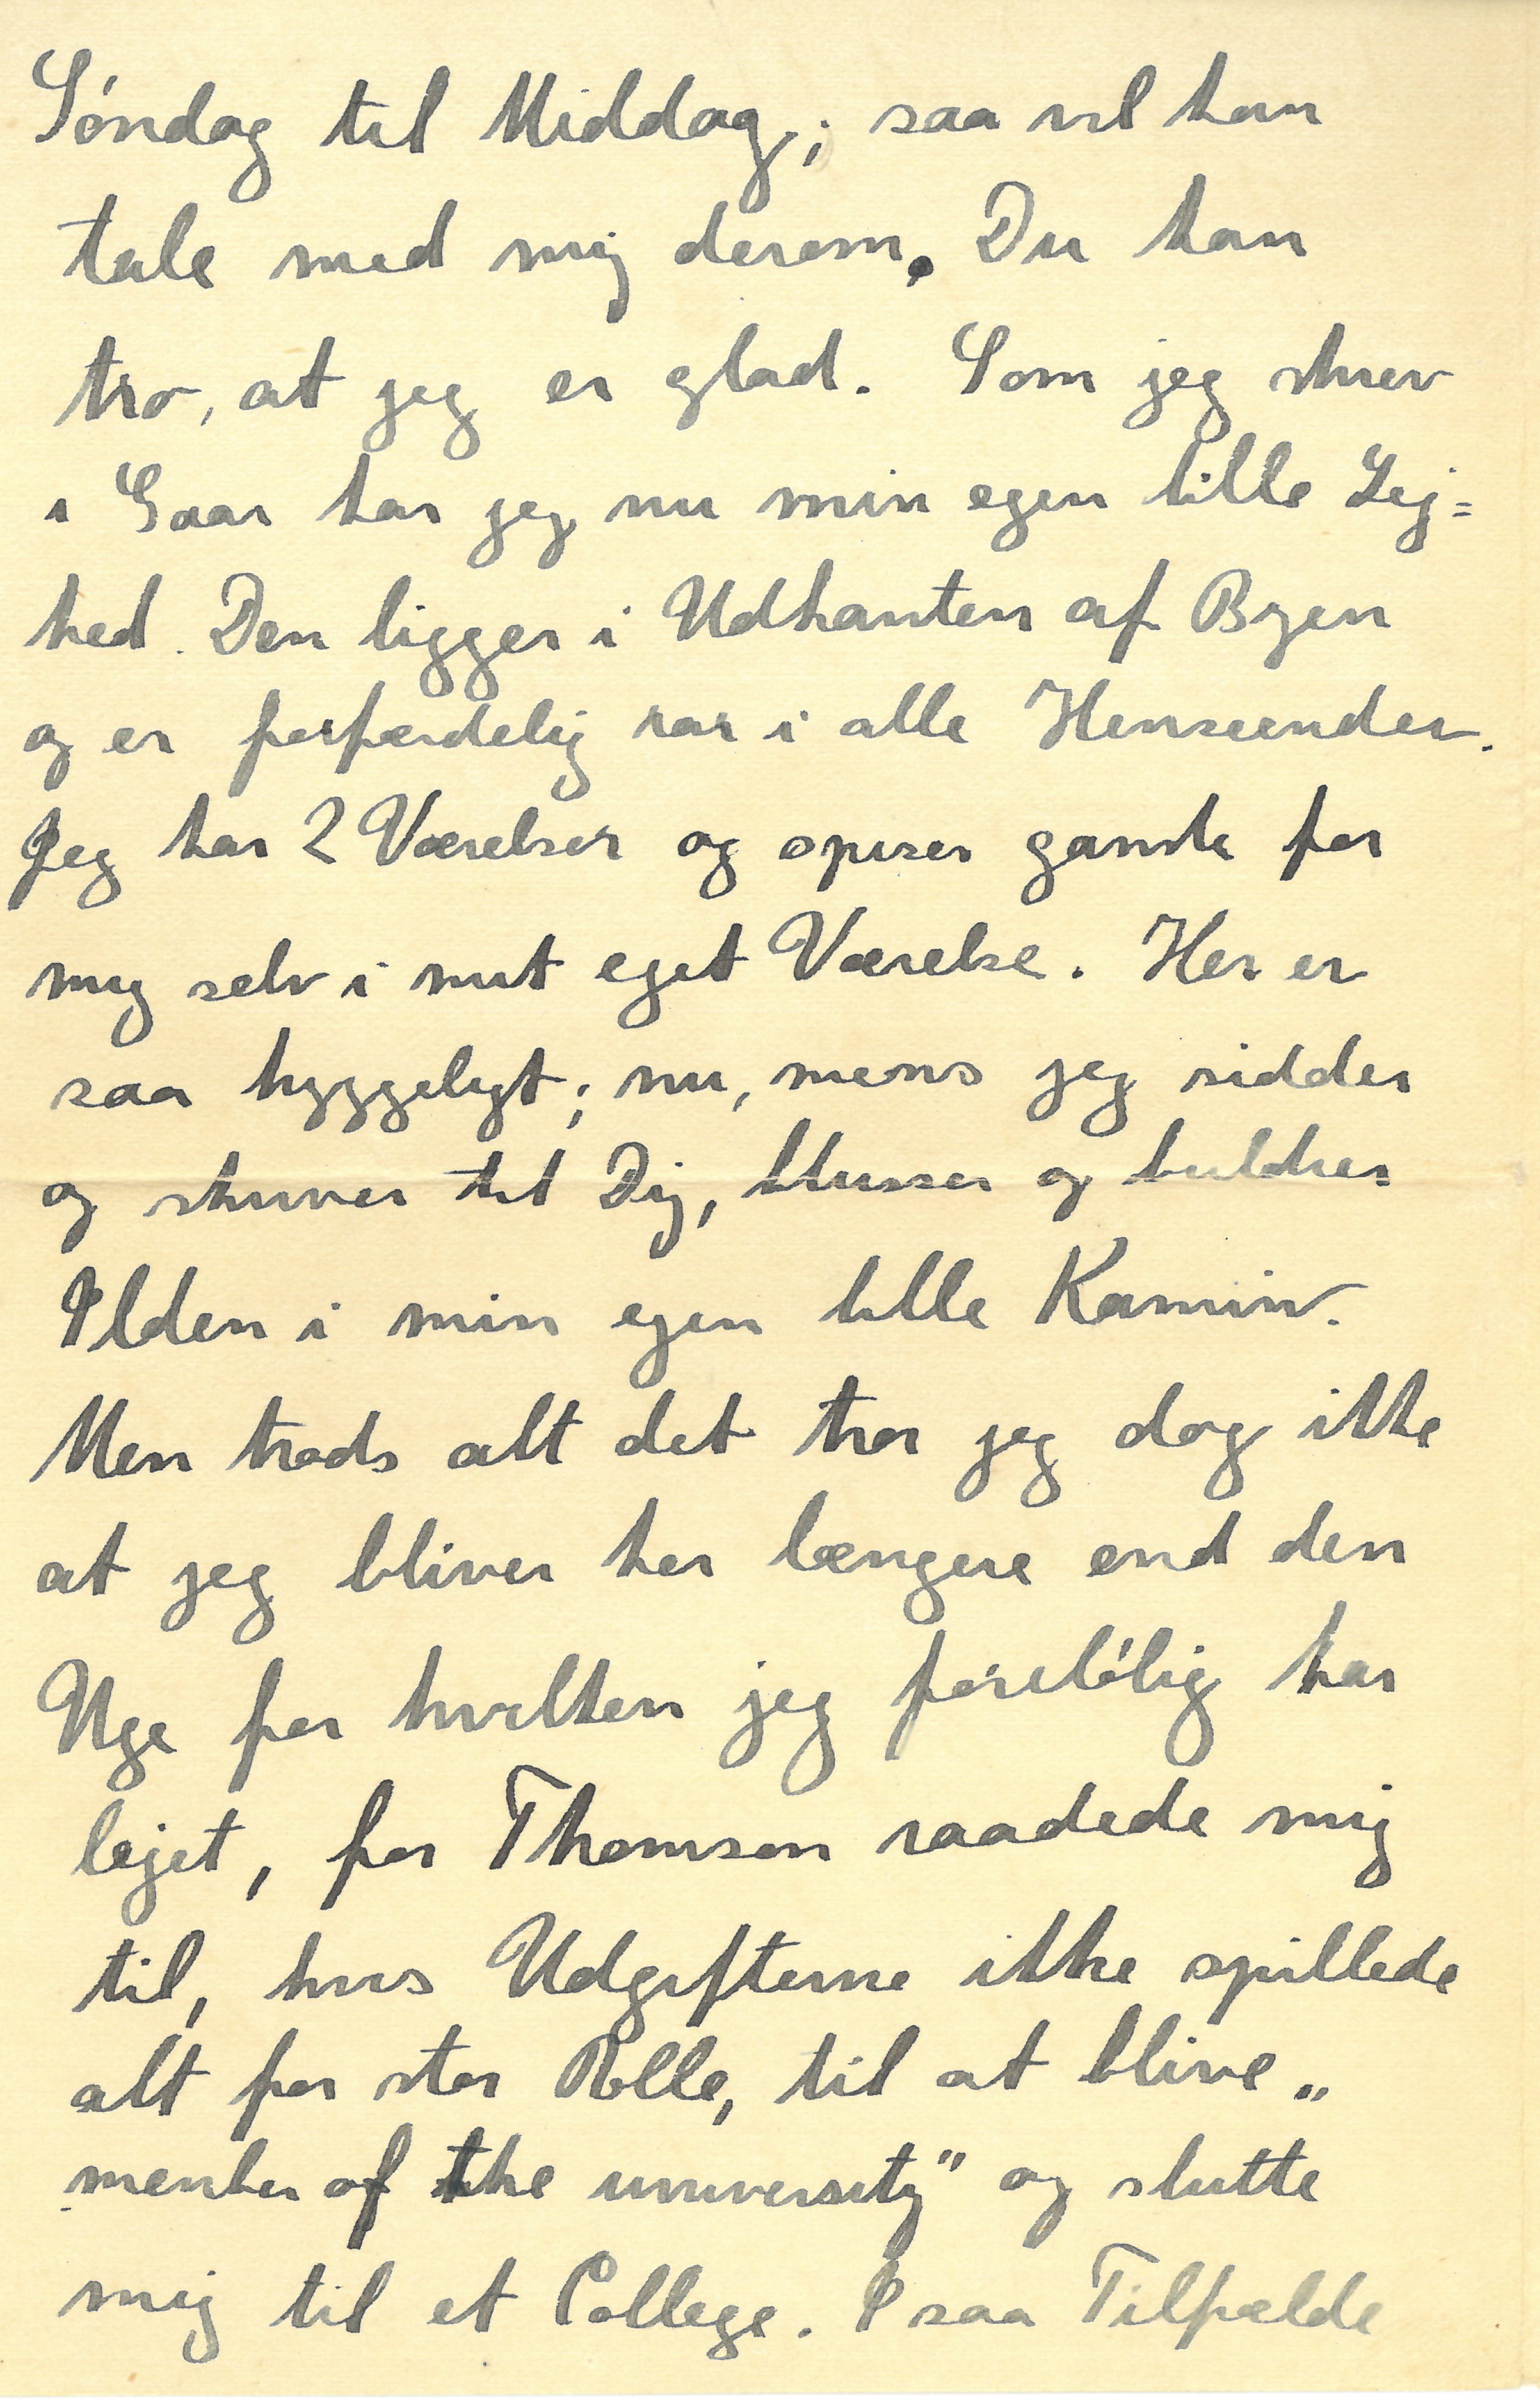 Søndag til Middag; saa vil han
tale med mig derom. Du kan
tro, at jeg er glad. Som jeg skrev
i Gaar har jeg nu min egen lille Lej=
hed. Den ligger i Udkanten af Byen
og er forfærdelig rar i alle Henseender.
Jeg har 2 Værelser og spiser ganske for
mig selv i mit eget Værelse. Her er
saa hyggeligt; nu, mens jeg sidder
og skriver til Dig, blusser og buldrer
Ilden i min egen lille Kamin.
Men trods alt det tror jeg dog ikke
at jeg bliver her længere end den
Uge for hvilken jeg foreløbig har
lejet, for Thomson raadede mig
til, hvis Udgifterne ikke spillede
alt for stor Rolle, til at blive „
member of the university" og slutte
mig til et College. I saa Tilfælde